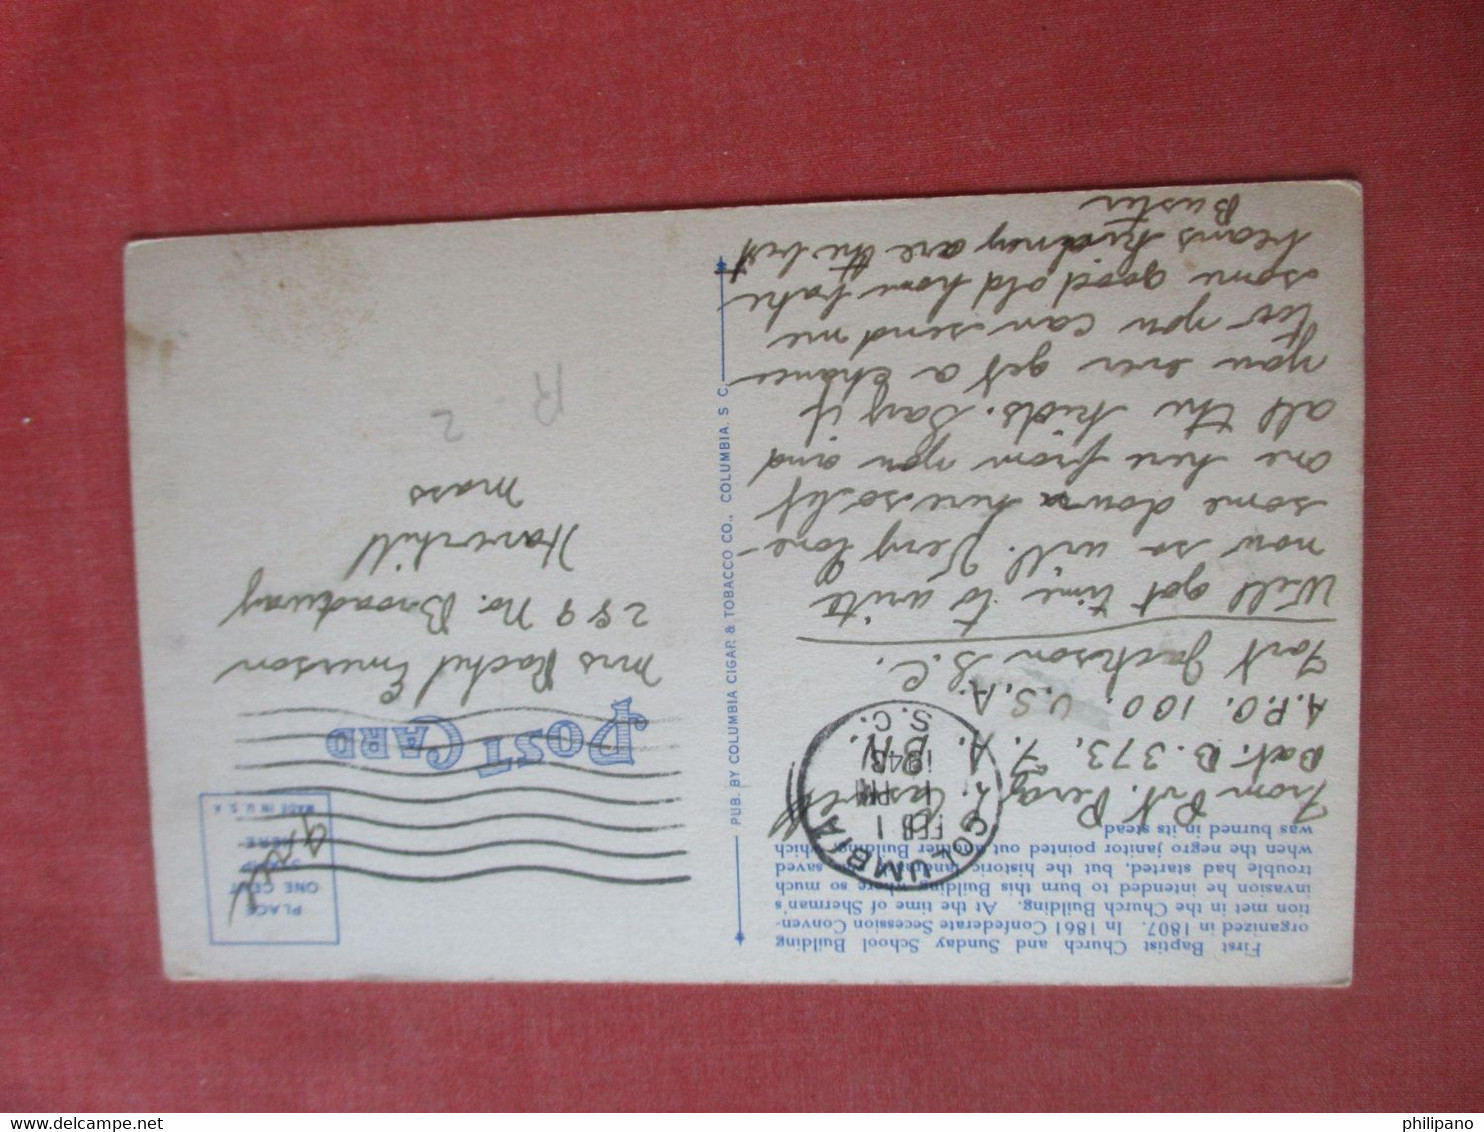 First Baptist Church and Sunday School Building
organized in 1807. In 1861 Confederate Secession Conven-
tion met in the Church Building. At the time of Sherman's
invasion he intended to burn this Building where so much
trouble had started, but the historic landmark was saved
when the negro janitor pointed out another Building which
was burned in its stead
From Pvt. Percy L.
Bat. B. 373. F. A. BN.
A.P.O. 100. U.S.A.
Fort Jackson S.C.
Well got time to write
now so will. Very lone-
some down here so let
me here from you and
all the kids. Say if
you ever get a chance
for you can send me
some good old home bake
beans kidney are the best
Buster
COLUMBIA
FEB 1
1 PM
1943
S.C.
PUB. BY COLUMBIA CIGAR & TOBACCO CO., COLUMBIA, S. C.
PLACE
ONE CENT
STAMP
HERE
MADE IN U. S. A.
Free
POST CARD
Mrs Rachel Emerson
289 No. Broadway
Haverhill
Mass
R-2
philipano